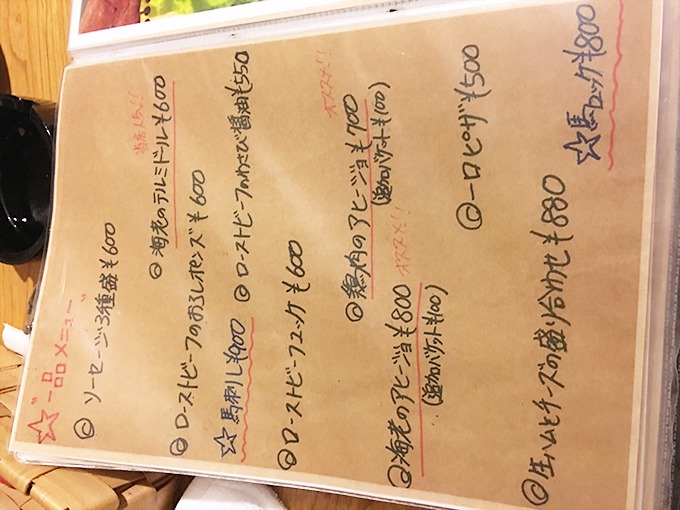 ☆一品メニュー
◎ソーセージ3種盛 ¥600
◎海老のテルミドール ¥600
◎ローストビーフのおろしポンズ ¥600
◎ローストビーフのわさび醤油 ¥550
☆馬刺し ¥900
◎ローストビーフユッケ ¥600
オススメ!!
◎鶏肉のアヒージョ ¥700
(追加バケット¥100)
◎海老のアヒージョ ¥800 オススメ!!
(追加バケット¥100)
◎一口ピザ ¥500
◎生ハムとチーズの盛り合わせ ¥880
☆馬ユッケ ¥800